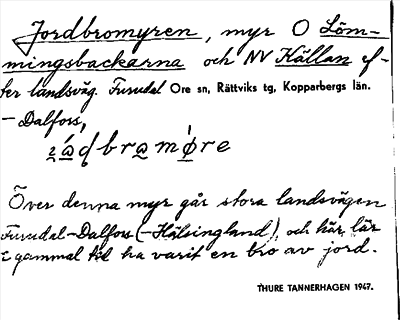 Jordbromyren, myr O Löm-
mingsbackarna och NV Källan ef-
ter landsväg. Furudal Ore sn, Rättviks tg, Kopparbergs län.
- Dalfors,
Över denna myr går stora landsvägen
Furudal-Dalfors (-Hälsingland), och här lär
i gammal tid ha varit en bro av jord.
THURE TANNERHAGEN 1947.